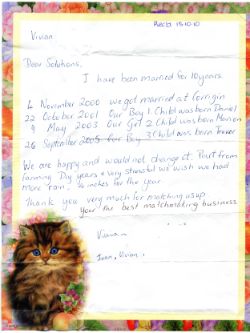 Rec'd 15.10.10
Vivian
Dear Solutions,
I have been married for 10 years.
4 November 2000 we got married at Corrigin
22 October 2001 Our Boy 1 Child was born Daniel
9 May 2003 Our Girl 2 Child was born
26 September 2005 Our Boy 3 Child was born
We are happy and would not change it. Part from
farming Dry years & very stressful we wish we had
more rain. So makes for the year
Thank you very much for matching us up
Your the best matchmaking business